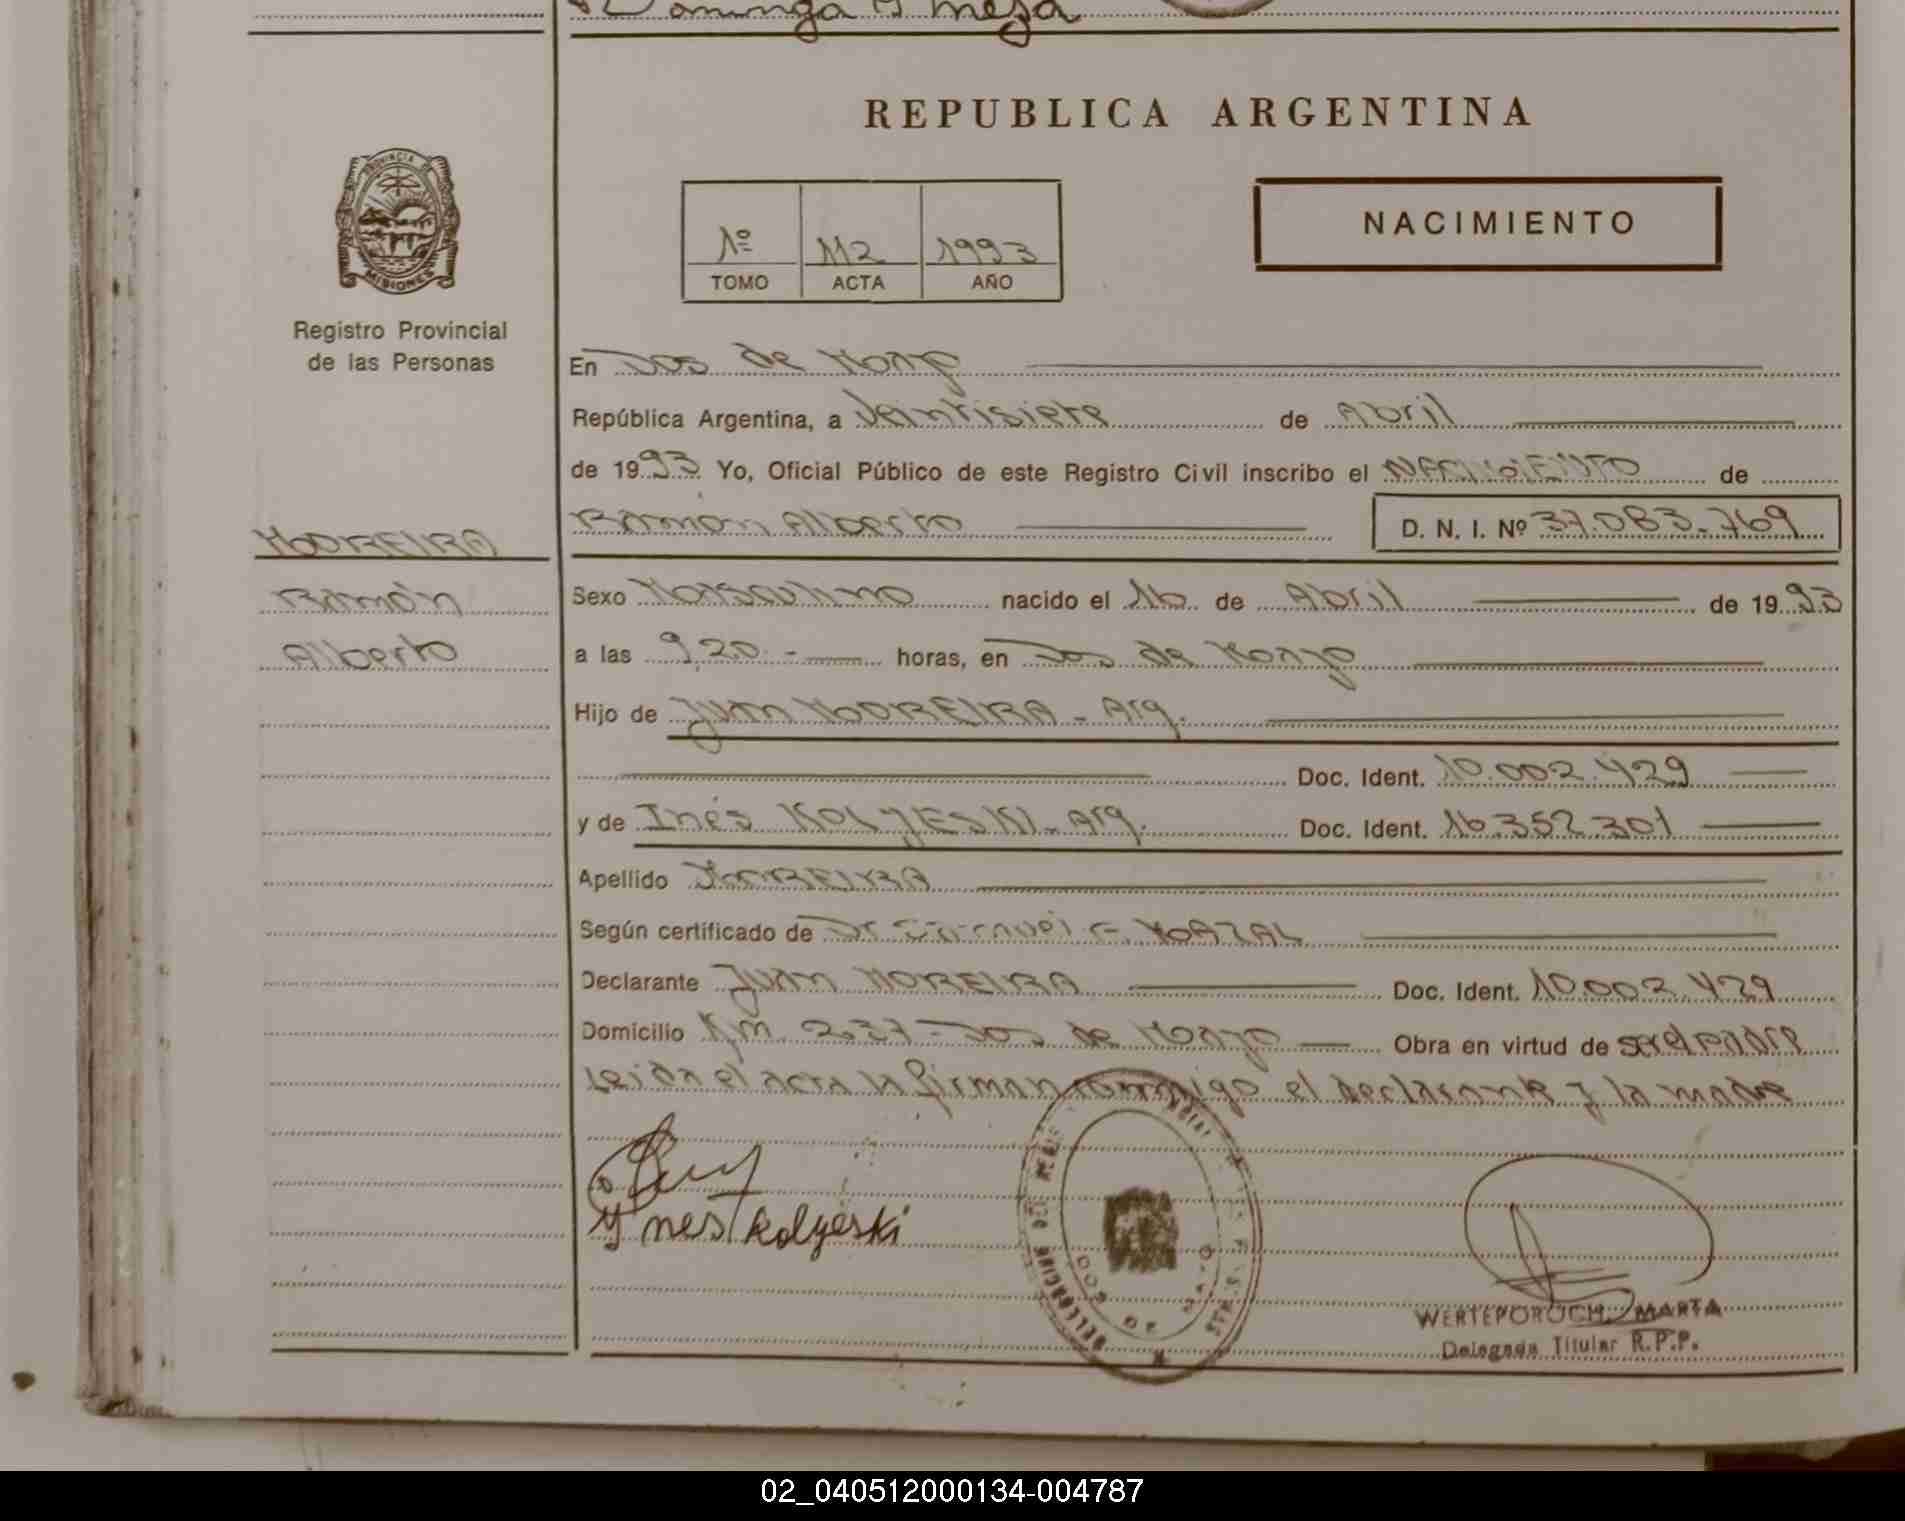 Dominga G Meza
REPUBLICA ARGENTINA
PROVINCIA DE
MISIONES
Registro Provincial
de las Personas
1º 112 1993
TOMO ACTA AÑO
NACIMIENTO
En Dos de Mayo
República Argentina, a Veintisiete de Abril
de 1993 Yo, Oficial Público de este Registro Civil inscribo el NACIMIENTO de
Ramon Alberto D. N. I. Nº 37.083.769
MOREIRA
Ramón
Alberto
Sexo Masculino nacido el 16 de Abril de 1993
a las 9,20.- horas, en Dos de Mayo
Hijo de Juan MOREIRA - Arg.
Doc. Ident. 10.002.429
y de Inés KOLYESKI - Arg. Doc. Ident. 16.352.301
Apellido MOREIRA
Según certificado de Dr
Declarante Juan MOREIRA Doc. Ident. 10.002.429
Domicilio Km. 237 - Dos de Mayo Obra en virtud de ser el padre
Leida el acta la firman conmigo el declarante y la madre
Ynes Kolyeski
DOS DE MAYO
WERTEPOROCH, MARTA
Delegada Titular R.P.P.
02_040512000134-004787